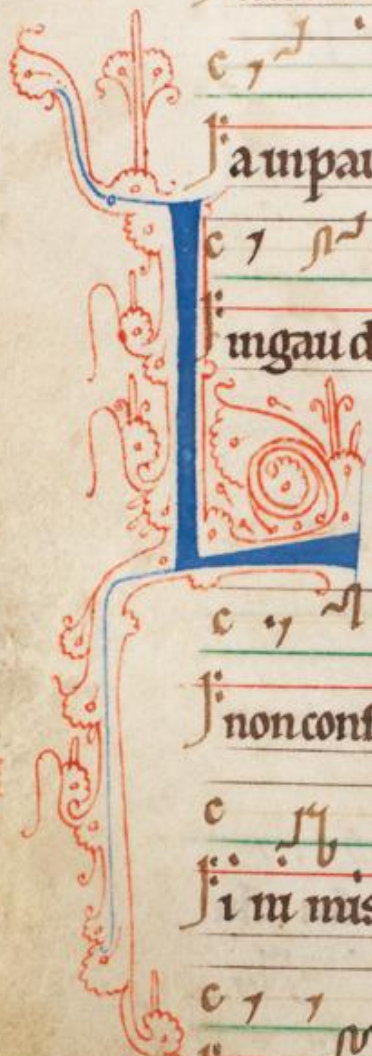 a inpau
ingau d
L
non conf
i ni mis